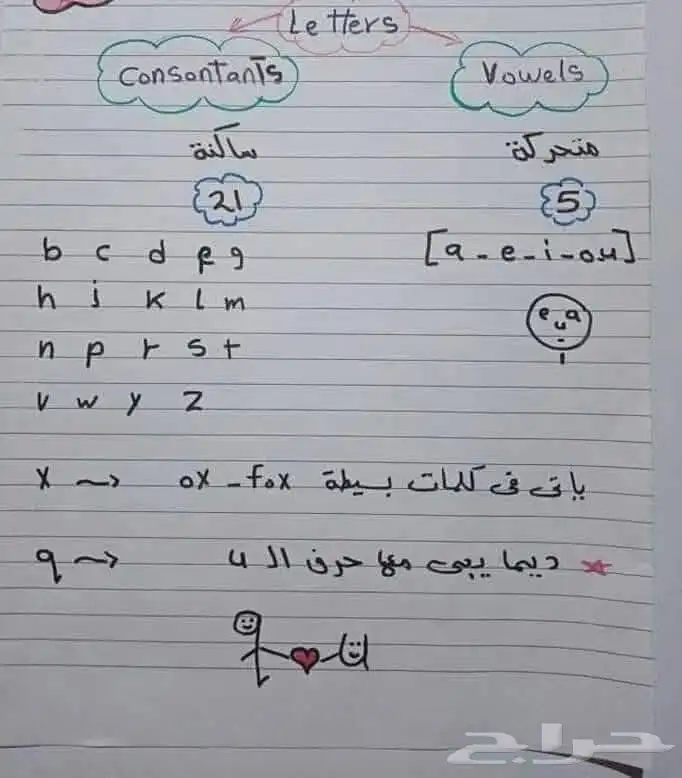 Letters
Consontants
Vowels
ساكنة
متحركة
21
5
b c d f g
[a - e - i - o u]
h j k l m
e u a
i
n p r s t
v w y z
x → ox - fox ياتى فى كلمات بسيطة
q → ديما ييجى معها حرف الـ u *
حراج